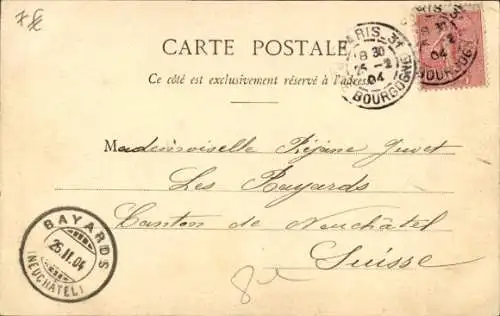 CARTE POSTALE
Ce côté est exclusivement réservé à l'adresse
PARIS 31
8 30
25 - 2
04
BOURGOGNE
PARIS 31
8 30
2
04
BOURGOGN
Mademoiselle Réjane Juvet
Les Bayards
Canton de Neuchâtel
Suisse
BAYARDS
26.II.04
(NEUCHÂTEL)